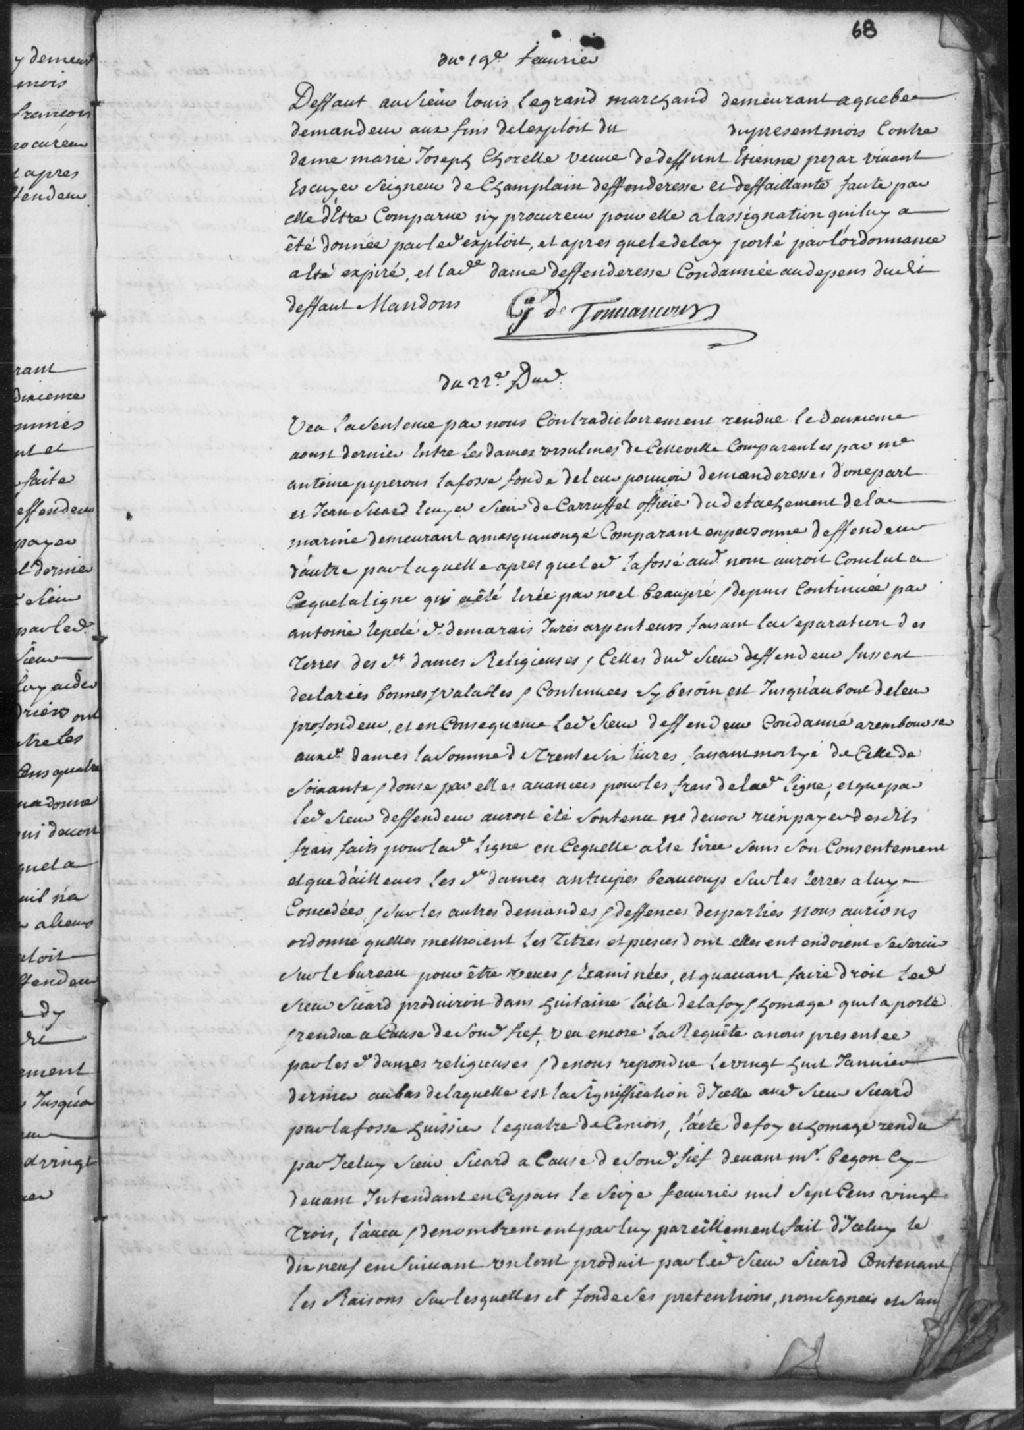 68
du 19e feuvrier
Deffaut au sieur louis legrand marchand demeurant a quebec
demandeur aux fins de lexploit du du present mois Contre
dame marie Joseph Chorelle veuve de deffunt Etienne pezar vivant
Escuyer Seigneur de Champlain deffenderesse et deffaillante faute par
elle d'Etre Comparue ny procureur pour elle a lassignation qui luy a
êté donnée par led exploit, et apres que le delay porté par l'ordonnance
a Eté expiré, et lade dame deffenderesse Condamnée au depens dudit
deffaut Mandons G de Tonnancour
du 22e Dud.
Veu la sentence par nous Contradictoirement rendue le Deuxieme
aoust dernier Entre les dames ursulines de Cette ville Comparentes par me
antoine puyperoux lafosse fondé de leur pouvoir demanderesses d'une part
et Jean Sicard Ecuyer Sieur de Carruffel officier du detachement de la
marine demeurant a masquinongé Comparant en personne deffendeur
d'autre par laquelle apres que led lafosse aud nom auroit Conclut a
Ceque la ligne qui a êté tirée par noel beaupré & depuis Continuée par
antoine lepelé d. demarais Jurés arpenteurs faisant la Separation des
Terres des dt dames Religieuses & Celles dud Sieur deffendeur fussent
declarées bonnes & valables & Continuées sy besoin est Jusqu'au bout de leur
profondeur, et en Consequence led Sieur deffendeur Condamné a rembourser
auxd dames la somme de Trente six livres, faisant moityé de Celle de
soixante & douze par elles avancées pour les frais de lad ligne, et que par
led Sieur deffendeur auroit été Soutenu ne devoir rien payer desdits
frais faits pour lade ligne en Cequelle a Eté tirée Sans Son Consentement
et que d'ailleurs les de dames anticipées beaucoup Sur les terres a luy
Concedées, & sur les autres demandes & deffences des parties nous aurions
ordonné quelles mettroient les Titres et pieces dont elles entendoient se servir
Sur le bureau pour être veues & Examinées, et quavant faire droit led
Sieur Sicard produiroit dans huitaine l'acte de la foy & homage quil a porté
& rendue a Cause de Sond fief, veu encore la Requête a nous presentée
par les d dames religieuses & de nous repondue le vingt huit Janvier
dernier au bas de laquelle est la Signiffication d'Icelle aud Sieur Sicard
par lafosse huissier le quatre de Ce mois, l'acte de foy et homage rendu
par Iceluy Sieur Sicard a Cause de Sond fief devant mr. begon Cy
devant Intendant en Ce pays le Seize feuvrier mil Sept Cens vingt
Trois, l'aveu & denombrement par luy pareillement fait d'Iceluy le
dix neuf en Suivant un Ecrit produit par led Sieur Sicard Contenant
les Raisons Sur lesquelles il fonde Ses pretentions, non Signées et San